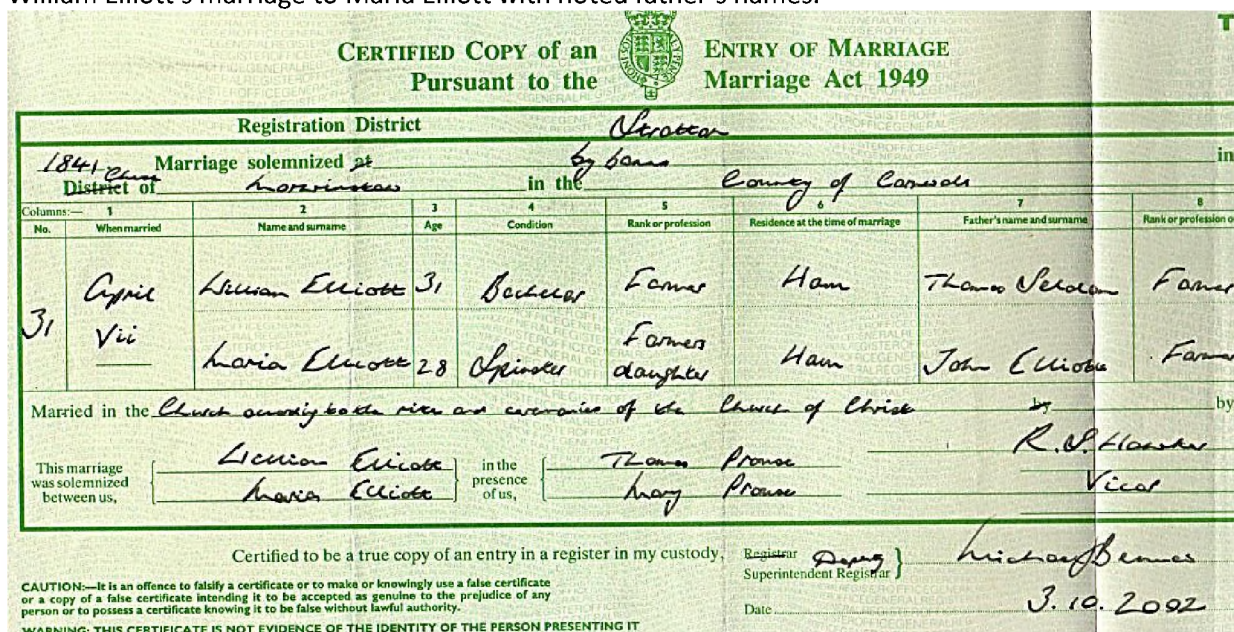 William Elliott's marriage to Maria Elliott with noted father's names.
CERTIFIED COPY of an ENTRY OF MARRIAGE
Pursuant to the Marriage Act 1949
Registration District Stratton
1841 Marriage solemnized at by banns in
District of Morwinstow in the County of Cornwall
Columns:— 1 2 3 4 5 6 7 8
No. When married Name and surname Age Condition Rank or profession Residence at the time of marriage Father's name and surname Rank or profession o
31 April Vii William Elliott 31 Bachelor Farmer Ham Thomas Farmer
Maria Elliott 28 Spinster Farmers daughter Ham John Elliott Farmer
Married in the Church according to the rites and ceremonies of the Church of Christ by by
This marriage was solemnized between us, William Elliott in the presence of us, Thomas Prouse R. S. Hawker
Maria Elliott Mary Prouse Vicar
Certified to be a true copy of an entry in a register in my custody, Registrar Deputy
Superintendent Registrar
CAUTION:—It is an offence to falsify a certificate or to make or knowingly use a false certificate
or a copy of a false certificate intending it to be accepted as genuine to the prejudice of any
person or to possess a certificate knowing it to be false without lawful authority.
Date 3.10.2002
WARNING: THIS CERTIFICATE IS NOT EVIDENCE OF THE IDENTITY OF THE PERSON PRESENTING IT